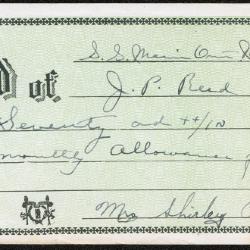 of S. S. Main
J. P. Reed
Seventy and xx/100
monthly Allowance
Mrs Shirley